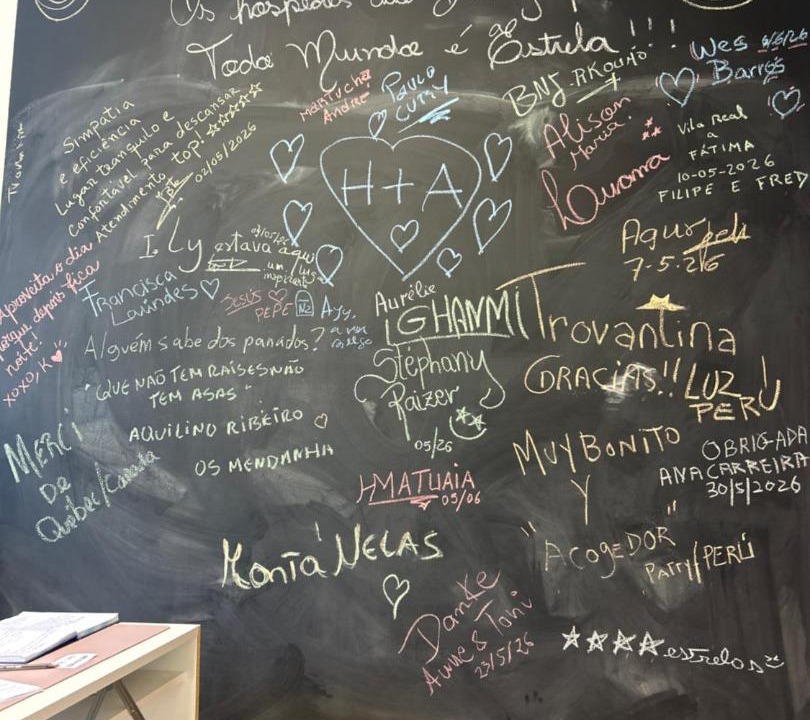 Os hospedes
Toda Mundo é Estrela!!!
Wes 6/6/26
Barros
Martucha
André
PAULO
CURY
BNJ
Simpatia
e eficiência
Lugar tranquilo e
Confortável para descansar
Atendimento top!
02/05/2026
Alison
Maria.
Luvama
Vila Real
a
FÁTIMA
10-05-2026
FILIPE E FRED
H+A
ILy estava aqui
um
Aqur
7-5.26
Aproveita o dia
porque depois fica
noite!
XOXO, K
Francisca
Lavindes
JESUS
PEPE
Aurélie
GHANMI
Trovantina
Alguém sabe dos panados?
Stéphany
Raizer
05/26
GRACIAS!! LUZ
PERÚ
"QUE NÃO TEM RAÍSES NÃO
TEM ASAS"
AQUILINO RIBEIRO
OS MENDANHA
MERCI
De
Québec/Canada
MUY BONITO
Y
"ACOGEDOR"
PATTY/PERÚ
OBRIGADA
ANA CARREIRA
30/5/2026
HMATUAIA
05/06
NELAS
Danke
Anne & Toni
23/5/26
estrelas